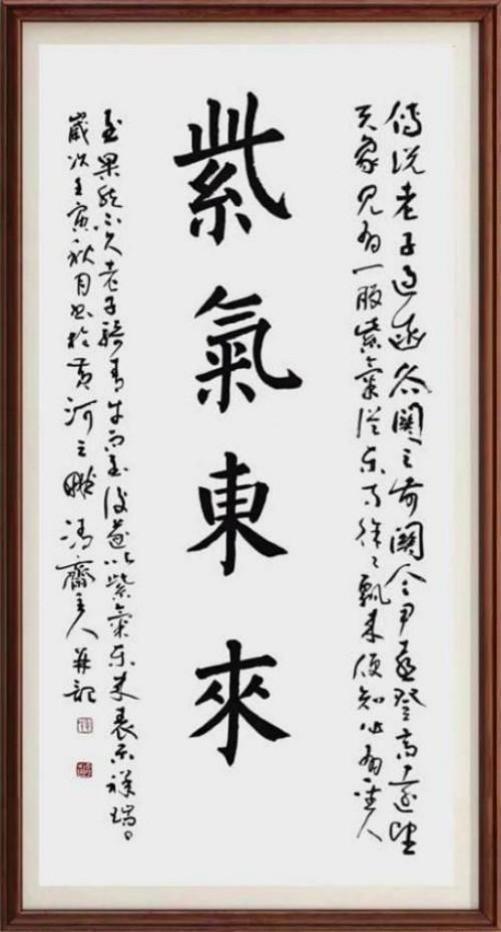 傳说老子過函谷關之前關令尹喜登高遠望
天象見有一股紫氣從东方徐〻飄来便知必有聖人
紫氣東來
至果然不久老子骑青牛而至後遂以紫氣东来表示祥瑞
歲次壬寅秋月书於黄河之畔齋主人并記